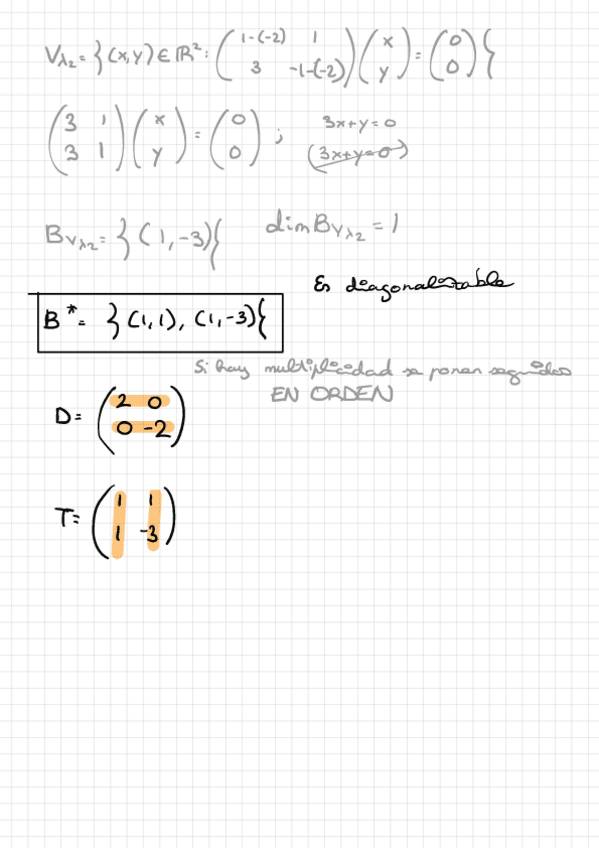 V_λ₂ = }(x,y) ∈ ℝ²: (1-(-2) 1; 3 -1-(-2)) (x; y) = (0; 0){
(3 1; 3 1) (x; y) = (0; 0) ; 3x+y=0 (3x+y=0)
B_Vλ₂ = }(1,-3){ dim B_Vλ₂ = 1
Es diagonalizable
B* = }(1,1), (1,-3){
Si hay multiplicidad se ponen seguidos
EN ORDEN
D = (2 0; 0 -2)
T = (1 1; 1 -3)